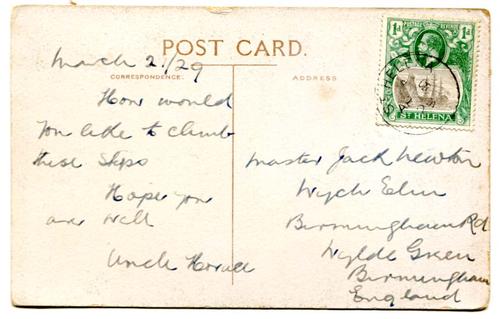 POST CARD.
March 2./29
CORRESPONDENCE.
ADDRESS
How would
you like to climb
these steps
Hope you
are well
Uncle
1d POSTAGE & REVENUE 1d
ST HELENA
ST HELENA
Master Jack Newton
Wych Elm
Birmingham Rd
Wylde Green
Birmingham
England